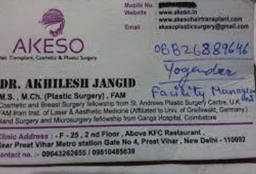 Mobile No
Website : www.akeso.in
www.akesohairtransplant.com
Email : akesoplasticsurgery@gmail.com
AKESO
Hair Transplant, Cosmetic & Plastic Surgery
08826889646
Yogender
Facility Manager
DR. AKHILESH JANGID
M.S., M.Ch. (Plastic Surgery), FAM
Cosmetic and Breast Surgery fellowship from St. Andrews Plastic Surgery Centre, U.K
FAM from Inst. of Laser & Aesthetic Medicine (Affiliated to Univ. of Greifswald, Germany)
Hand Surgery and Microsurgery fellowship from Ganga Hospital, Coimbatore
Clinic Address : F - 25, 2 nd Floor, Above KFC Restaurant,
Near Preet Vihar Metro station Gate No 4, Preet Vihar, New Delhi - 110092
Contact no. :- 09643262655 / 09810485639